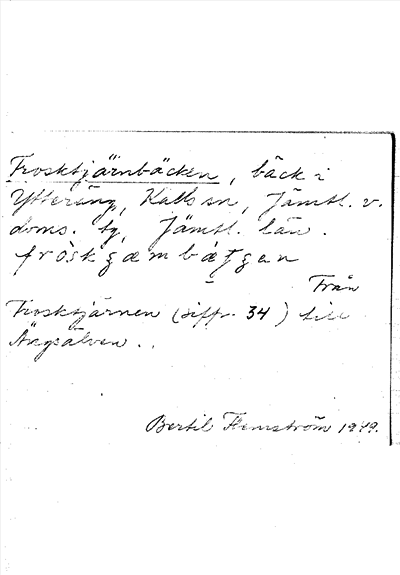 Frosktjärnbäcken, bäck i
Ytteräng, Kalls sn, Jämtl. v.
doms. tg, Jämtl. län.
Från
Frosktjärnen (siffr. 34) till
Ängsälven.
Bertil Flemström 1949.